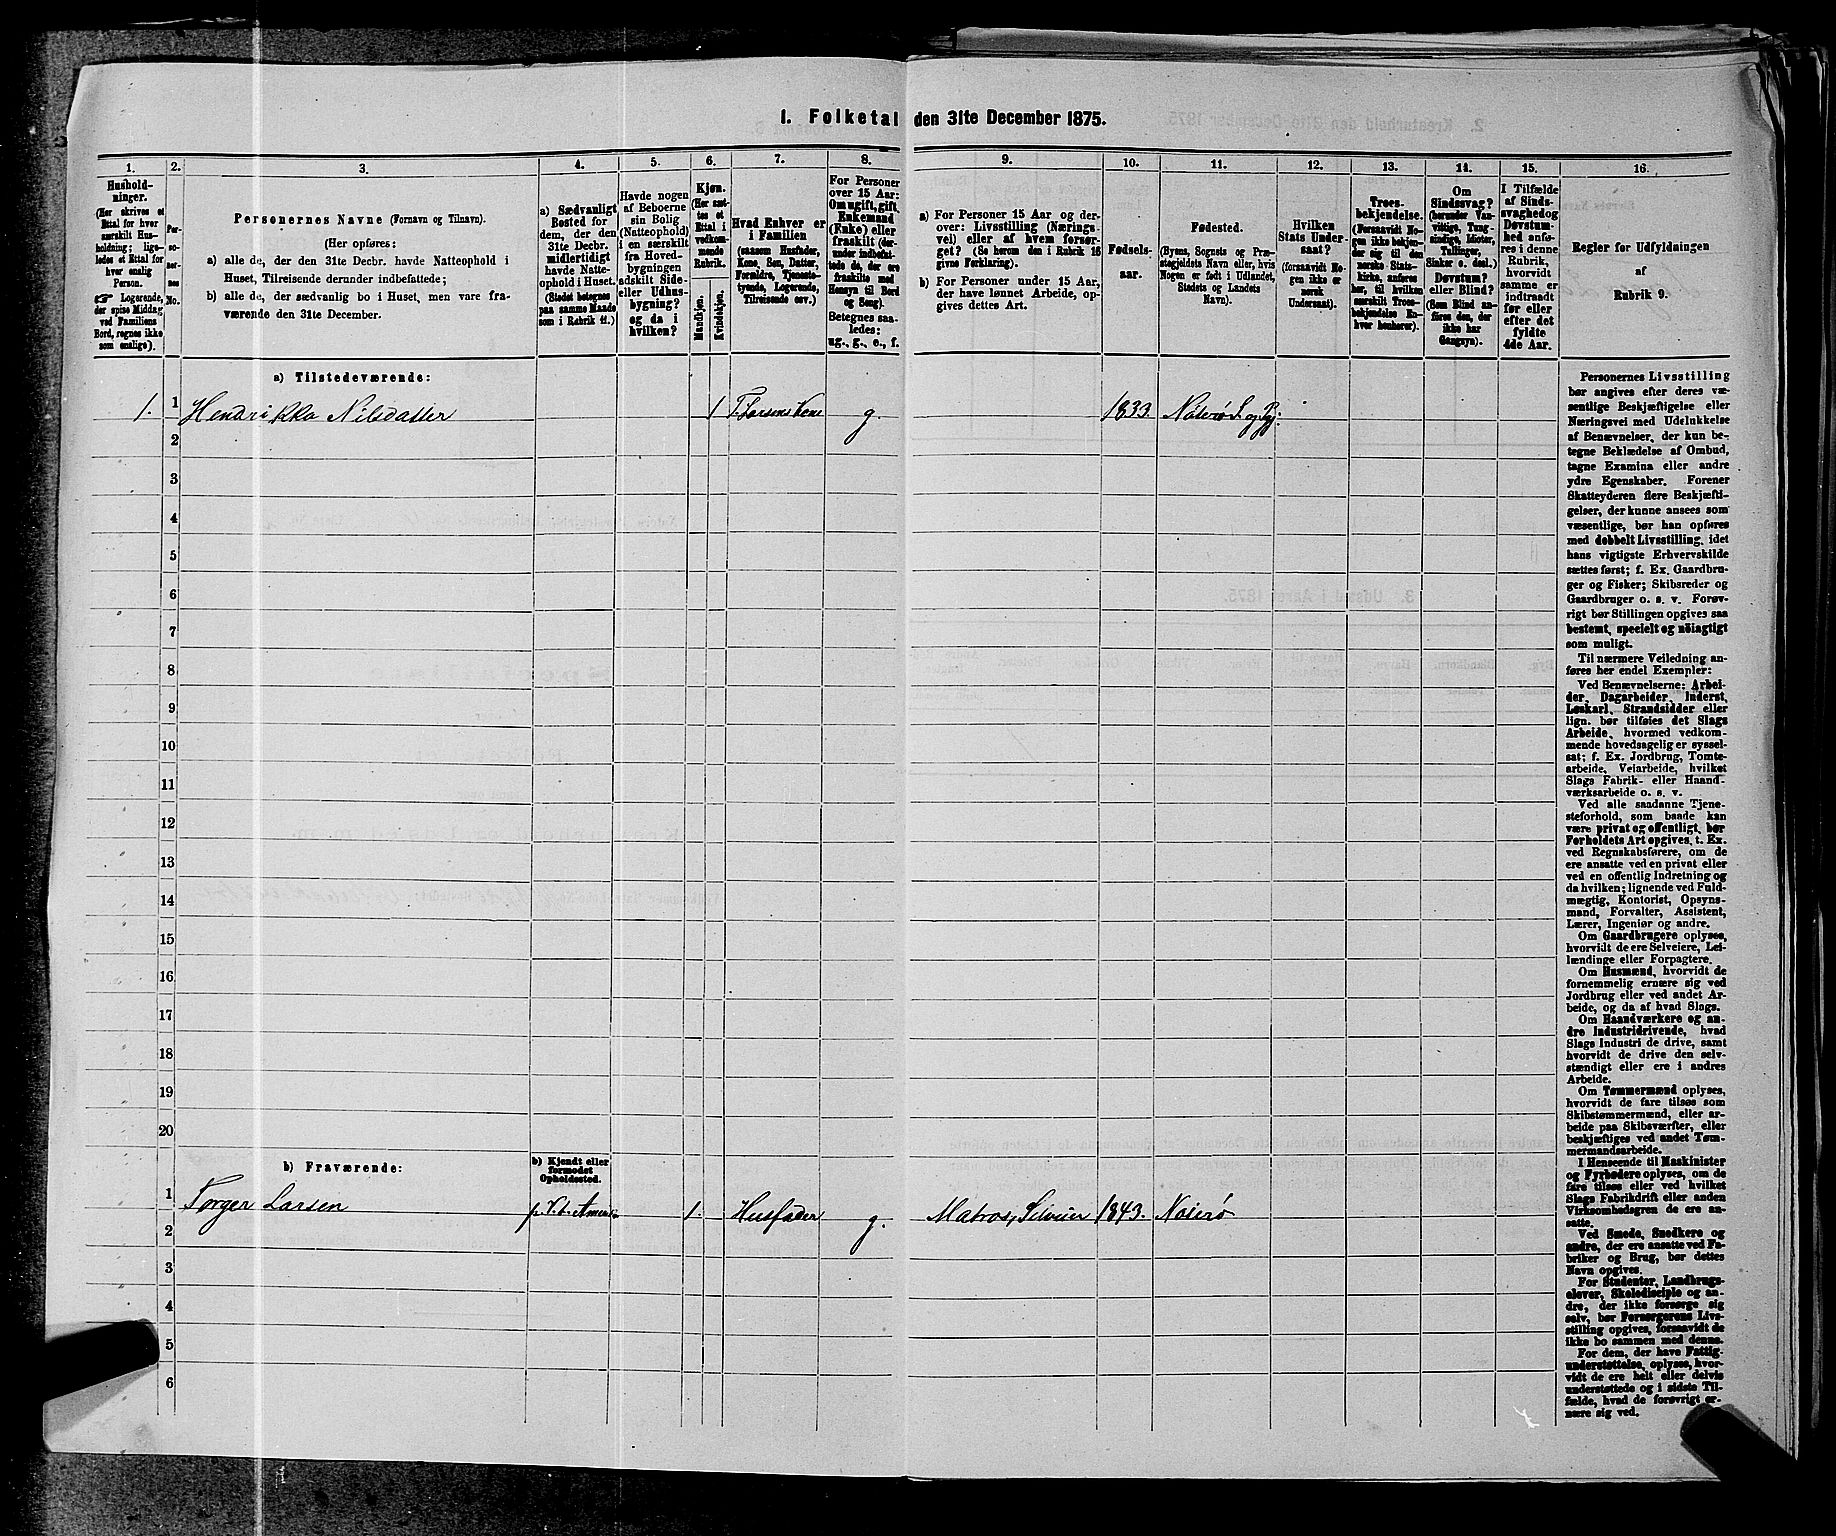 1. Folketal den 31te December 1875.
1. 2. 3. 4. 5. 6. 7. 8. 9. 10. 11. 12. 13. 14. 15. 16.
Hushold-
ninger.
(Her skrives et
Ettal for hver
særskilt Hus-
holdning; lige-
ledes et Ettal for
hver enslig
Person.
☞ Logerende,
der spise Middag
ved Familiens
Bord, regnes ikke
som enslige).
Per-
so-
ner-
nes
No.
Personernes Navne (Fornavn og Tilnavn).
(Her opføres:
a) alle de, der den 31te Decbr. havde Natteophold i
Huset, Tilreisende derunder indbefattede;
b) alle de, der sædvanlig bo i Huset, men vare fra-
værende den 31te December.
a) Sædvanligt
Bosted for
dem, der den
31te Decbr.
midlertidigt
havde Natte-
ophold i Huset.
(Stedet betegnes
paa samme Maade
som i Rubrik 11.)
Havde nogen
af Beboerne
sin Bolig
(Natteophold)
i en særskilt
fra Hoved-
bygningen
adskilt Side-
eller Udhus-
bygning?
og da i
hvilken?
Kjøn.
(Her sæt-
tes et
Ettal i
vedkom-
mende
Rubrik.
Mandkjøn.
Kvindekjøn.
Hvad Enhver er
i Familien
(saasom Husfader,
Kone, Søn, Datter,
Forældre, Tjeneste-
tyende, Logerende,
Tilreisende osv.)
For Personer
over 15 Aar:
Om ugift, gift,
Enkemand
(Enke) eller
fraskilt (der-
under indbefat-
tede de, der ere
fraskilte med
Hensyn til Bord
og Seng).
Betegnes saa-
ledes:
ug., g., e., f.
a) For Personer 15 Aar og der-
over: Livsstilling (Nærings-
vei) eller af hvem forsør-
get? (Se herom den i Rubrik 16
givne Forklaring).
b) For Personer under 15 Aar,
der have lønnet Arbeide, op-
gives dettes Art.
Fødsels-
aar.
Fødested.
(Byens, Sognets og Præ-
stegjeldets Navn eller, hvis
Nogen er født i Udlandet,
Stedets og Landets
Navn).
Hvilken
Stats Under-
saat?
(forsaavidt No-
gen ikke er
norsk
Undersaat).
Troes-
bekjendelse.
(Forsaavidt No-
gen ikke bekjen-
der sig til den
norske Stats-
kirke, anføres
her, til hvilken
særskilt Troes-
bekjendelse En-
hver henhører).
Om
Sindssvag?
(herunder Van-
vittige, Tung-
sindige, Idioter,
Tullinger,
Sinker o. desl.)
Døvstum?
eller Blind?
(Som Blind an-
føres den, der
ikke har
Gangsyn).
I Tilfælde
af Sinds-
svaghed og
Døvstum-
hed anfø-
res i denne
Rubrik,
hvorvidt
samme er
indtraadt
før eller
efter det
fyldte
4de Aar.
Regler for Udfyldningen
af
Rubrik 9.
a) Tilstedeværende:
1. 1 Hendrikka Nilsdatter 1 T. Larsens Kone g. 1833. Nøterø S. og Pgj:
2
3
4
5
6
7
8
9
10
11
12
13
14
15
16
17
18
19
20
b) Fraværende:
b) Kjendt eller
formodet
Opholdssted.
1 Torger Larsen 1. Husfader g. Matros, Selveier 1843. Nøterø
2
3
4
5
6
Personernes Livsstilling
bør angives efter deres væ-
sentlige Beskjæftigelse eller
Næringsvei med Udelukkelse
af Benævnelser, der kun be-
tegne Beklædelse af Ombud,
tagne Examina eller andre
ydre Egenskaber. Forener
Skatteyderen flere Beskjæfti-
gelser, der kunne ansees som
væsentlige, bør han opføres
med dobbelt Livsstilling, idet
hans vigtigste Erhvervskilde
sættes først; f. Ex. Gaardbru-
ger og Fisker; Skibsreder og
Gaardbruger o. s. v. Forøv-
rigt bør Stillingen opgives saa
bestemt, specielt og nøiagtigt
som muligt.
Til nærmere Veiledning an-
føres her endel Exempler:
Ved Benævnelserne: Arbei-
der, Dagarbeider, Inderst,
Løskarl, Strandsidder eller
lign. bør tilføies det Slags
Arbeide, hvormed vedkom-
mende hovedsagelig er syssel-
sat; f. Ex. Jordbrug, Tomte-
arbeide, Veiarbeide, hvilket
Slags Fabrik- eller Haand-
værksarbeide o. s. v.
Ved alle saadanne Tjene-
steforhold, som baade kan
være privat og offentligt, bør
Forholdets Art opgives, t. Ex.
ved Regnskabsførere, om de
ere ansatte ved en privat eller
ved en offentlig Indretning og
da hvilken; lignende ved Fuld-
mægtig, Kontorist, Opsyns-
mand, Forvalter, Assistent,
Lærer, Ingeniør og andre.
Om Gaardbrugere oplyses,
hvorvidt de ere Selveiere, Lei-
lændinge eller Forpagtere.
Om Husmænd, hvorvidt de
fornemmelig ernære sig ved
Jordbrug eller ved andet Ar-
beide, og da af hvad Slags.
Om Haandværkere og an-
dre Industridrivende, hvad
Slags Industri de drive, samt
hvorvidt de drive den selv-
stændigt eller ere i andres
Arbeide.
Om Tømmermænd oplyses,
hvorvidt de fare tilsøs som
Skibstømmermænd, eller ar-
beide paa Skibsværfter, eller
beskjæftiges ved andet Tøm-
mermandsarbeide.
I Henseende til Maskinister
og Fyrbødere oplyses, om de
fare tilsøs eller ved hvilket
Slags Fabrikdrift eller anden
Virksomhedsgren de ere an-
satte.
Ved Smede, Snedkere og
andre, der ere ansatte ved Fa-
briker og Brug, bør dettes
Navn opgives.
For Studenter, Landbrugs-
elever, Skoledisciple og an-
dre, der ikke forsørge sig
selv, bør Forsørgerens Livs-
stilling opgives, forsaavidt de
ikke bo sammen med denne.
For dem, der have Fattig-
understøttelse, oplyses, hvor-
vidt de ere helt eller delvis
understøttede og i sidste Til-
fælde, hvad de forøvrigt er-
nære sig ved.